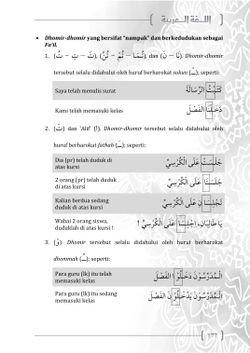 اللغة العربية
• Dhomir-dhomir yang bersifat "nampak" dan berkedudukan sebagai
Fa'il.
1. (تَ – تِ – تُ), (تُمَا – تُمْ – تُنَّ), (نَا – نَ). Dhomir-dhomir
tersebut selalu didahului oleh huruf berharokat sukun (ـْ); seperti:
Saya telah menulis surat
كَتَبْتُ الرِّسَالَةَ
Kami telah memasuki kelas
دَخَلْنَا الفَصْلَ
2. (تْ) dan 'Alif' (ا). Dhomir-dhomir tersebut selalu didahului oleh
huruf berharokat fathah (ـَ); seperti:
Dia (pr) telah duduk di
atas kursi
جَلَسَتْ عَلَى الْكُرْسِيِّ
2 orang (pr) telah duduk
di atas kursi
جَلَسَتَا عَلَى الْكُرْسِيِّ
Kalian berdua sedang
duduk di atas kursi
عَلَى الْكُرْسِيِّ
Wahai 2 orang siswa,
duduklah di atas kursi !
يَا طَالِبَانِ، اِجْلِسَا عَلَى الْكُرْسِيِّ !
3. (وْ) Dhomir tersebut selalu didahului oleh huruf berharokat
dhommah (ـُ); seperti:
Para guru (lk) telah
memasuki kelas
الْمُدَرِّسُوْنَ دَخَلُوْا الفَصْلَ
Para guru (lk) itu sedang
memasuki kelas
الْمُدَرِّسُوْنَ يَدْخُلُوْنَ الْفَصْلَ